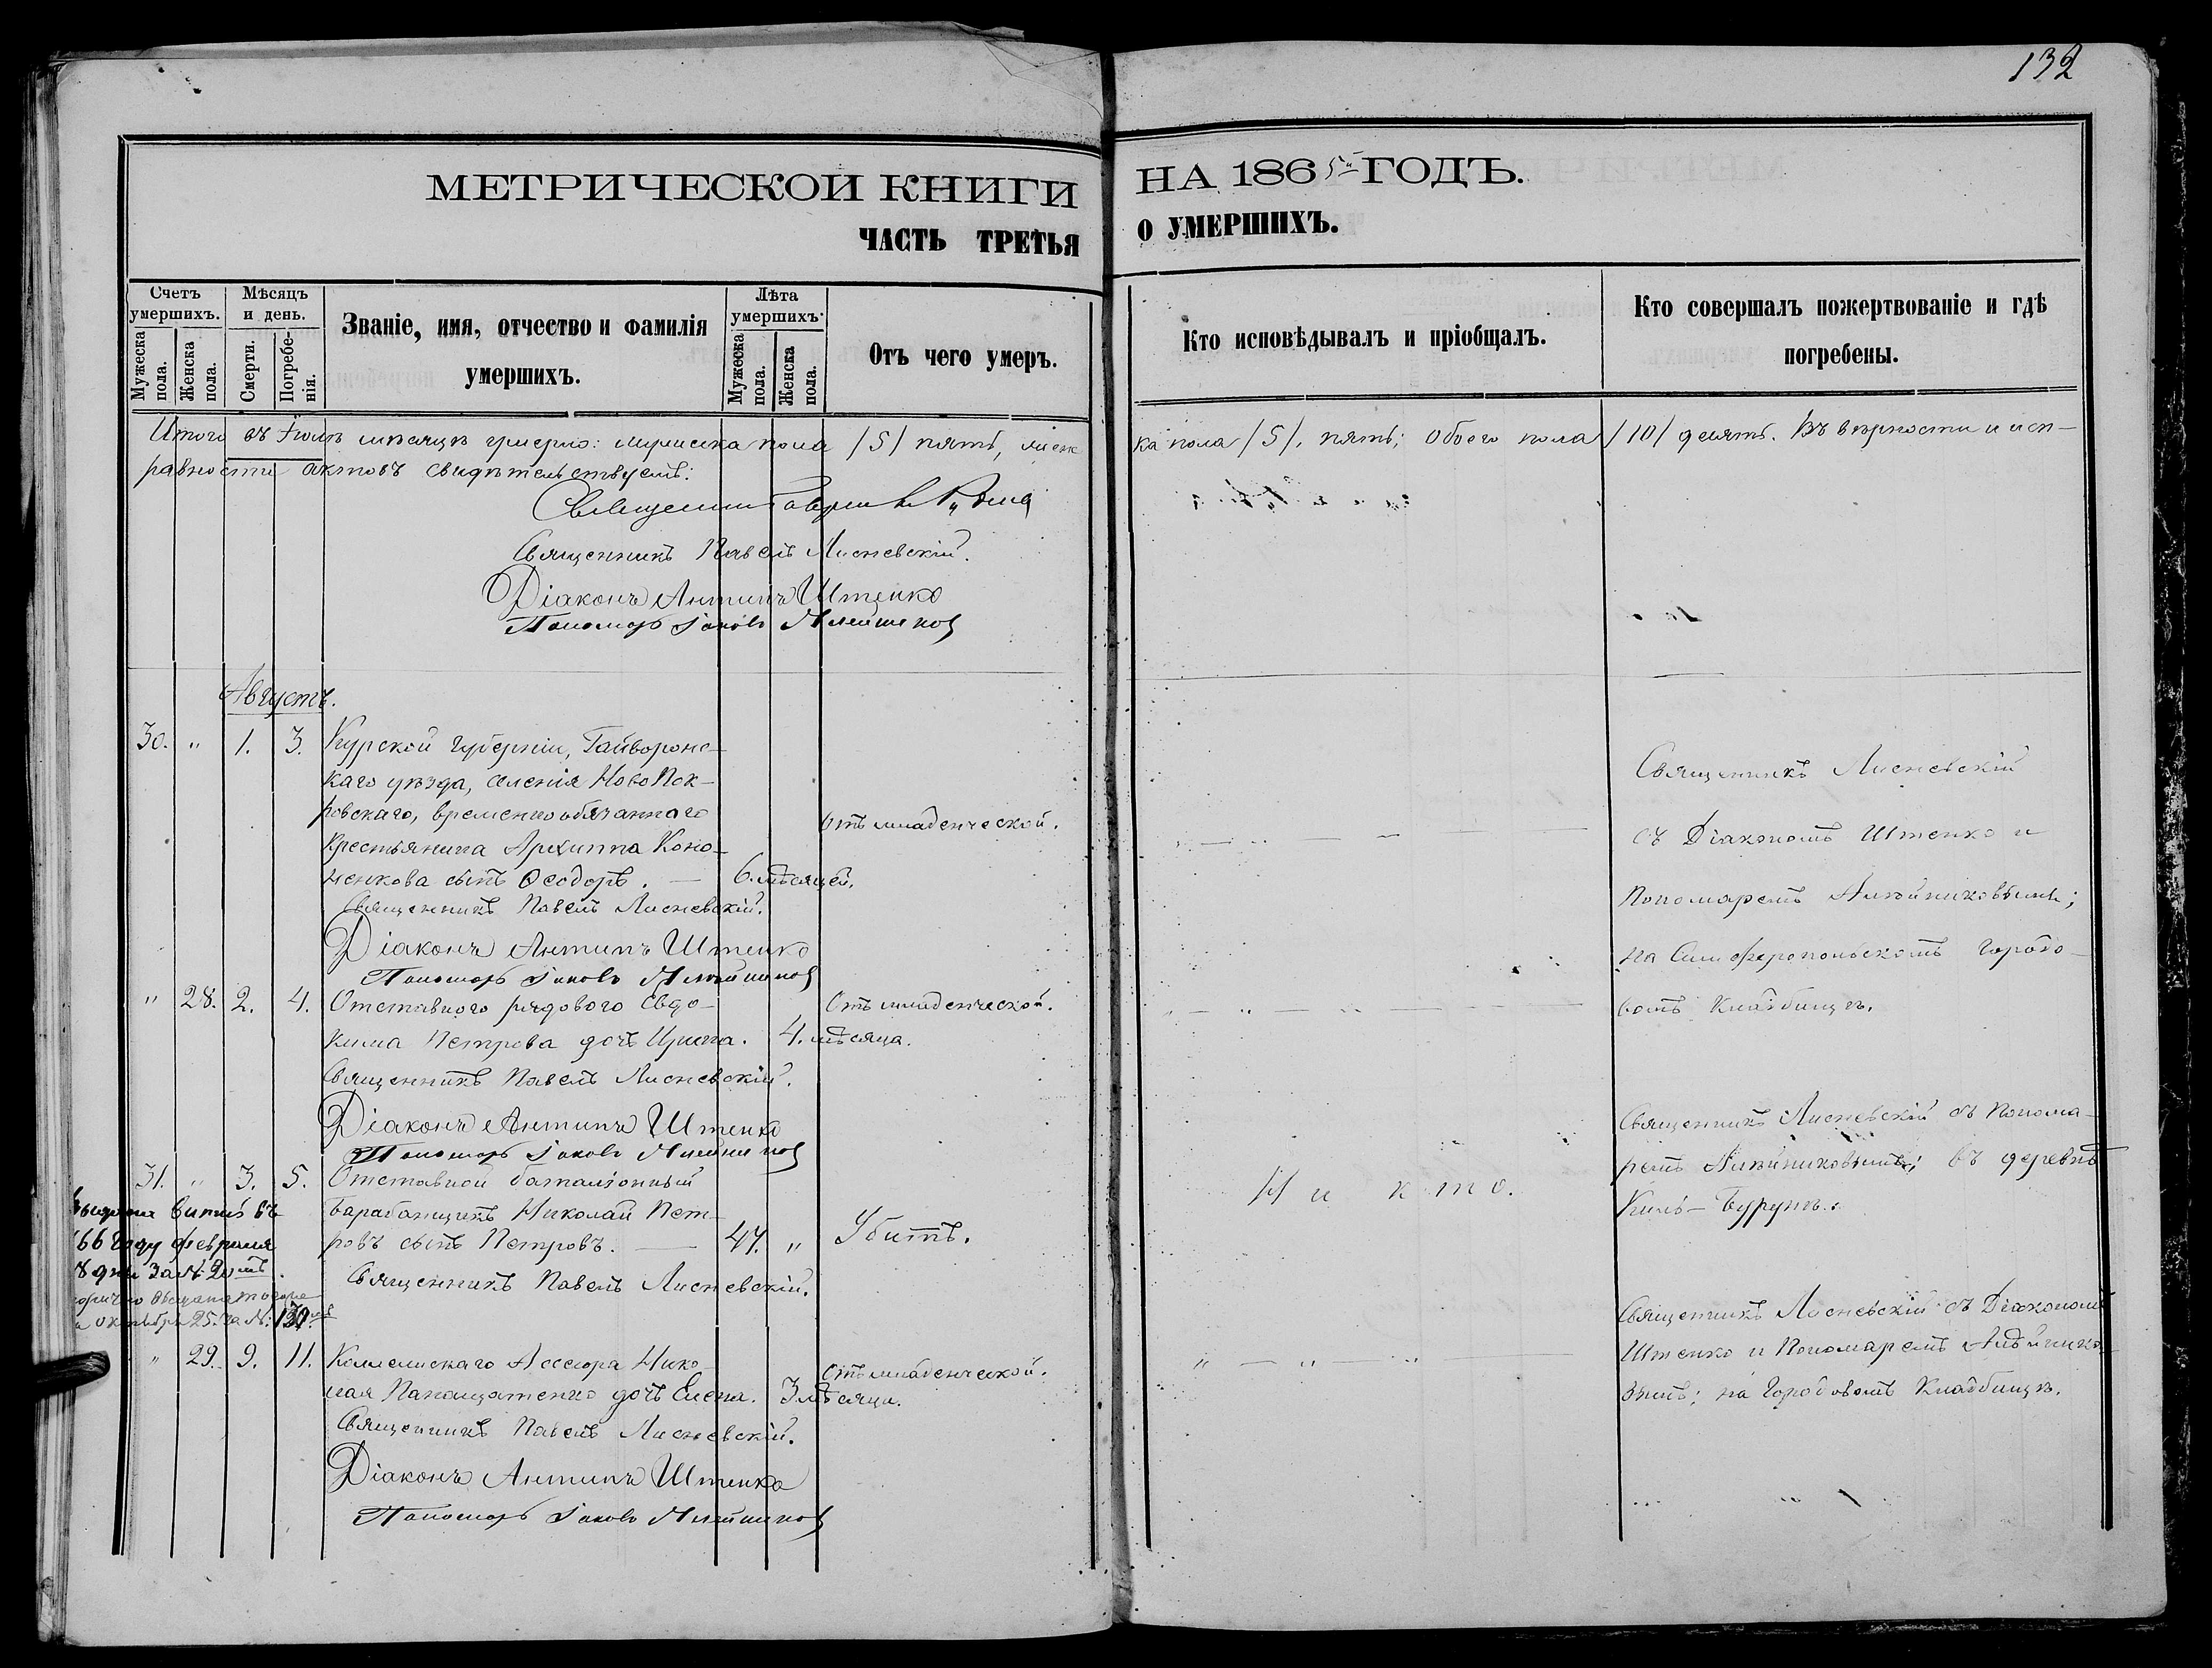 132
МЕТРИЧЕСКОЙ КНИГИ НА 1865й ГОДЪ.
ЧАСТЬ ТРЕТЬЯ О УМЕРШИХЪ.
Счетъ умершихъ.
Мужеска пола.
Женска пола.
Мѣсяцъ и день.
Смерти.
Погребенія.
Званіе, имя, отчество и фамилія
умершихъ.
Лѣта умершихъ.
Мужеска пола.
Женска пола.
Отъ чего умеръ.
Кто исповѣдывалъ и пріобщалъ.
Кто совершалъ пожертвованіе и гдѣ
погребены.
Итого въ Іюлѣ мѣсяцѣ умерло: мужеска пола /5/ пять, женска пола /5/, пять; обоего пола /10/ десять. Въ вѣрности и исп-
равности актовъ свидѣтельствуемъ:
Священникъ
Священникъ Павелъ Лисневскій.
Діаконъ Антипъ Штенко
Пономарь Іаковъ Алейников
Августъ.
30. " 1. 3. Курской губерніи, Гайворонс-
каго уѣзда, селенія НовоПок-
ровскаго, временно обязаннаго
крестьянина Архиппа Коно-
ненкова сынъ Ѳеодоръ. — 6. мѣсяцей.
Отъ младенческой.
Священникъ Лисневскій
съ Діакономъ Штенко и
Пономаремъ Алѣйниковымъ;
на Симферопольскомъ городо-
вомъ кладбищѣ.
Священникъ Павелъ Лисневскій.
Діаконъ Антипъ Штенко
Пономарь Іаковъ Алейников
" 28. 2. 4. Отставного рядового Евдо-
кима Петрова дочь Ирина. 4. мѣсяца.
Отъ младенческой.
Священникъ Павелъ Лисневскій.
Діаконъ Антипъ Штенко
Пономарь Іаковъ Алейников
31. " 3. 5. Отставной баталіонный
Барабанщикъ Николай Пет-
ровъ сынъ Петровъ. — 47. "
Убитъ.
Никто.
Священникъ Лисневскій съ Понома-
ремъ Алѣйниковымъ; въ деревнѣ
Киль-Бурунѣ.
66 году февраля
8 дня за №
октября 25. за №
Священникъ Павелъ Лисневскій.
" 29. 9. 11. Коллежскаго Ассесора Нико-
лая дочь Елена. 3. мѣсяца.
Отъ младенческой.
Священникъ Лисневскій съ Діакономъ
Штенко и Пономаремъ Алѣйнико-
вымъ; на городовомъ кладбищѣ.
Священникъ Павелъ Лисневскій.
Діаконъ Антипъ Штенко
Пономарь Іаковъ Алейников